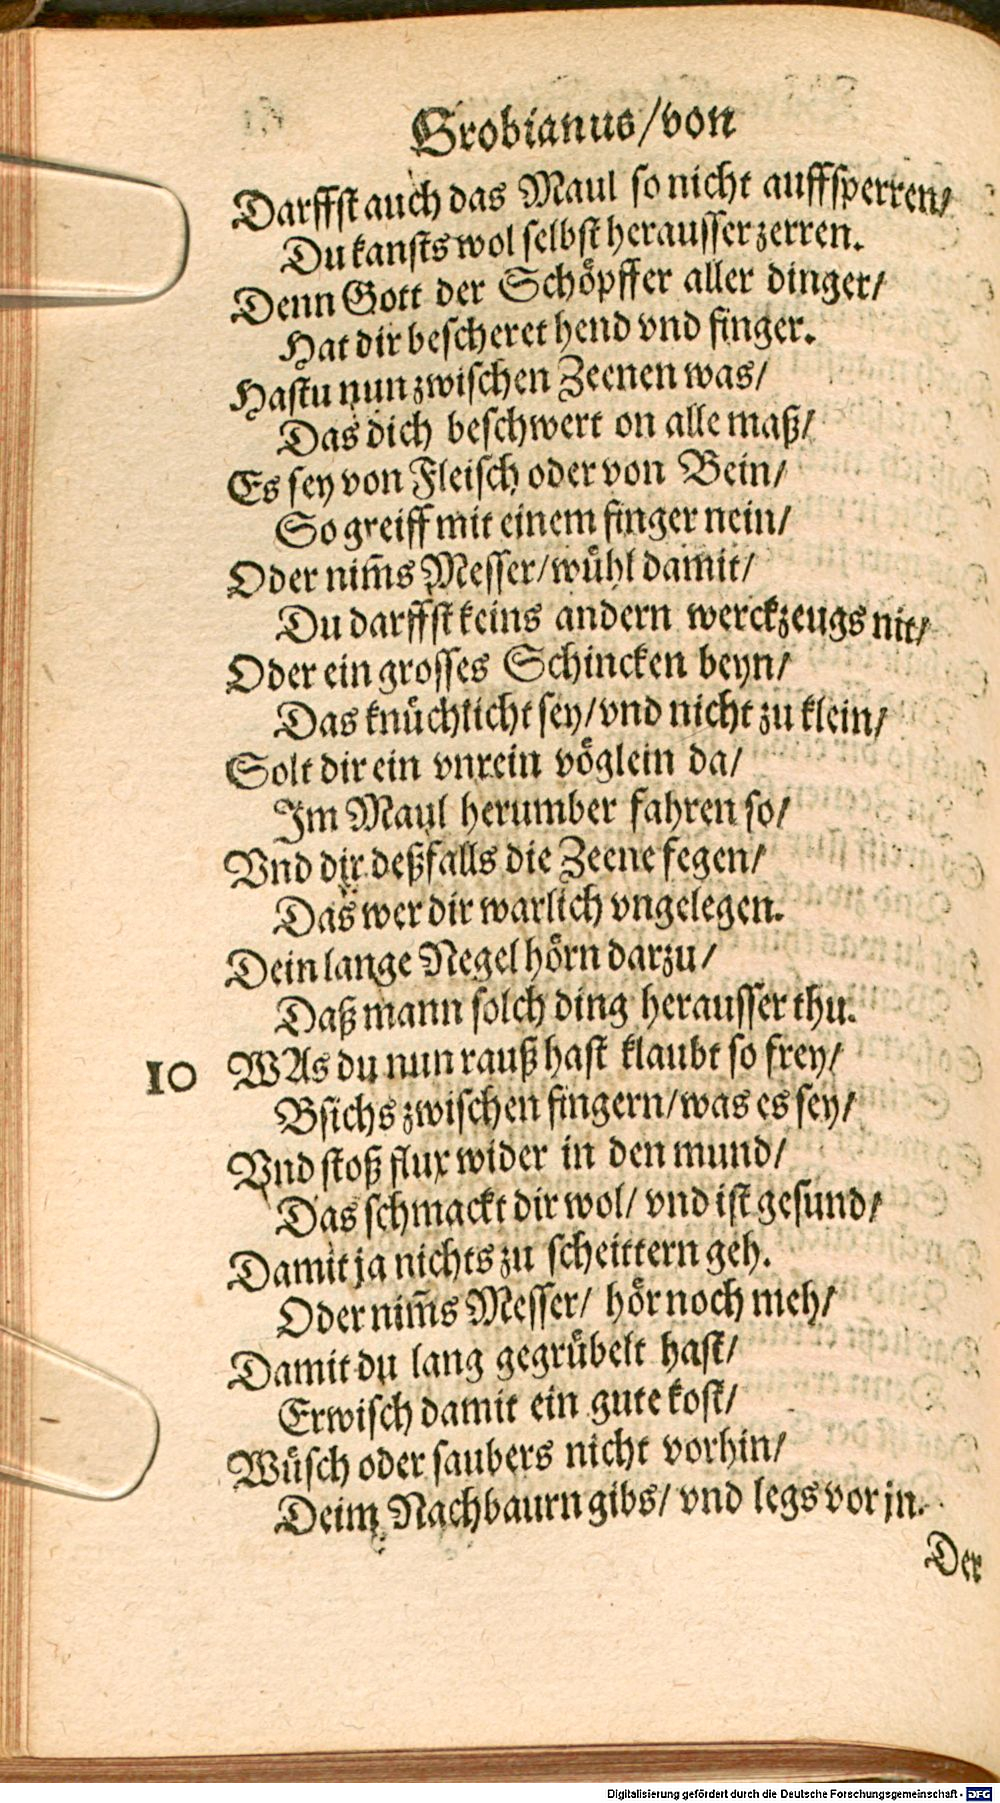 Grobianus/von
Darffst auch das Maul so nicht auffsperren/
Du kansts wol selbst herausser zerren.
Denn Gott der Schöpffer aller dinger/
Hat dir bescheret hend vnd finger.
Hastu nun zwischen Zeenen was/
Das dich beschwert on alle maß/
Es sey von Fleisch oder von Bein/
So greiff mit einem finger nein/
Oder nim̃s Messer/wühl damit/
Du darffst keins andern werckzeugs nit/
Oder ein grosses Schincken beyn/
Das knüchlicht sey/vnd nicht zu klein/
Solt dir ein vnrein vöglein da/
Im Maul herumber fahren so/
Vnd dir deßfalls die Zeene fegen/
Das wer dir warlich vngelegen.
Dein lange Negel hörn darzu/
Daß mann solch ding herausser thu.
10 WAs du nun rauß hast klaubt so frey/
Bsichs zwischen fingern/was es sey/
Vnd stoß flux wider in den mund/
Das schmackt dir wol/ vnd ist gesund/
Damit ja nichts zu scheittern geh.
Oder nim̃s Messer/ hör noch meh/
Damit du lang gegrübelt hast/
Erwisch damit ein gute kost/
Wüsch oder saubers nicht vorhin/
Deim Nachbaurn gibs/ vnd legs vor jn.
Der
Digitalisierung gefördert durch die Deutsche Forschungsgemeinschaft - DFG